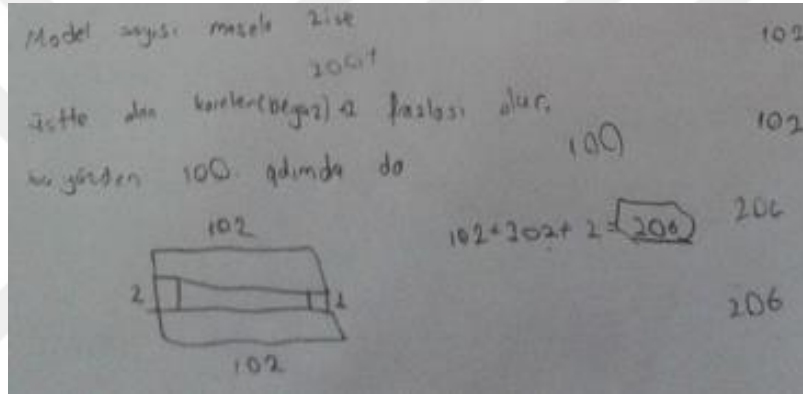 Model sayısı mesela 2 ise
üstte olan kareler(beyaz) 2 fazlası olur.
bu yüzden 100. adımda da
100
102
2
1
102
102+102+2=206
102
102
206
206